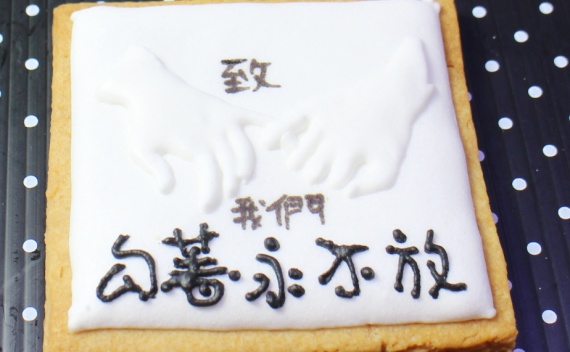 致
我們
勾著·永不放